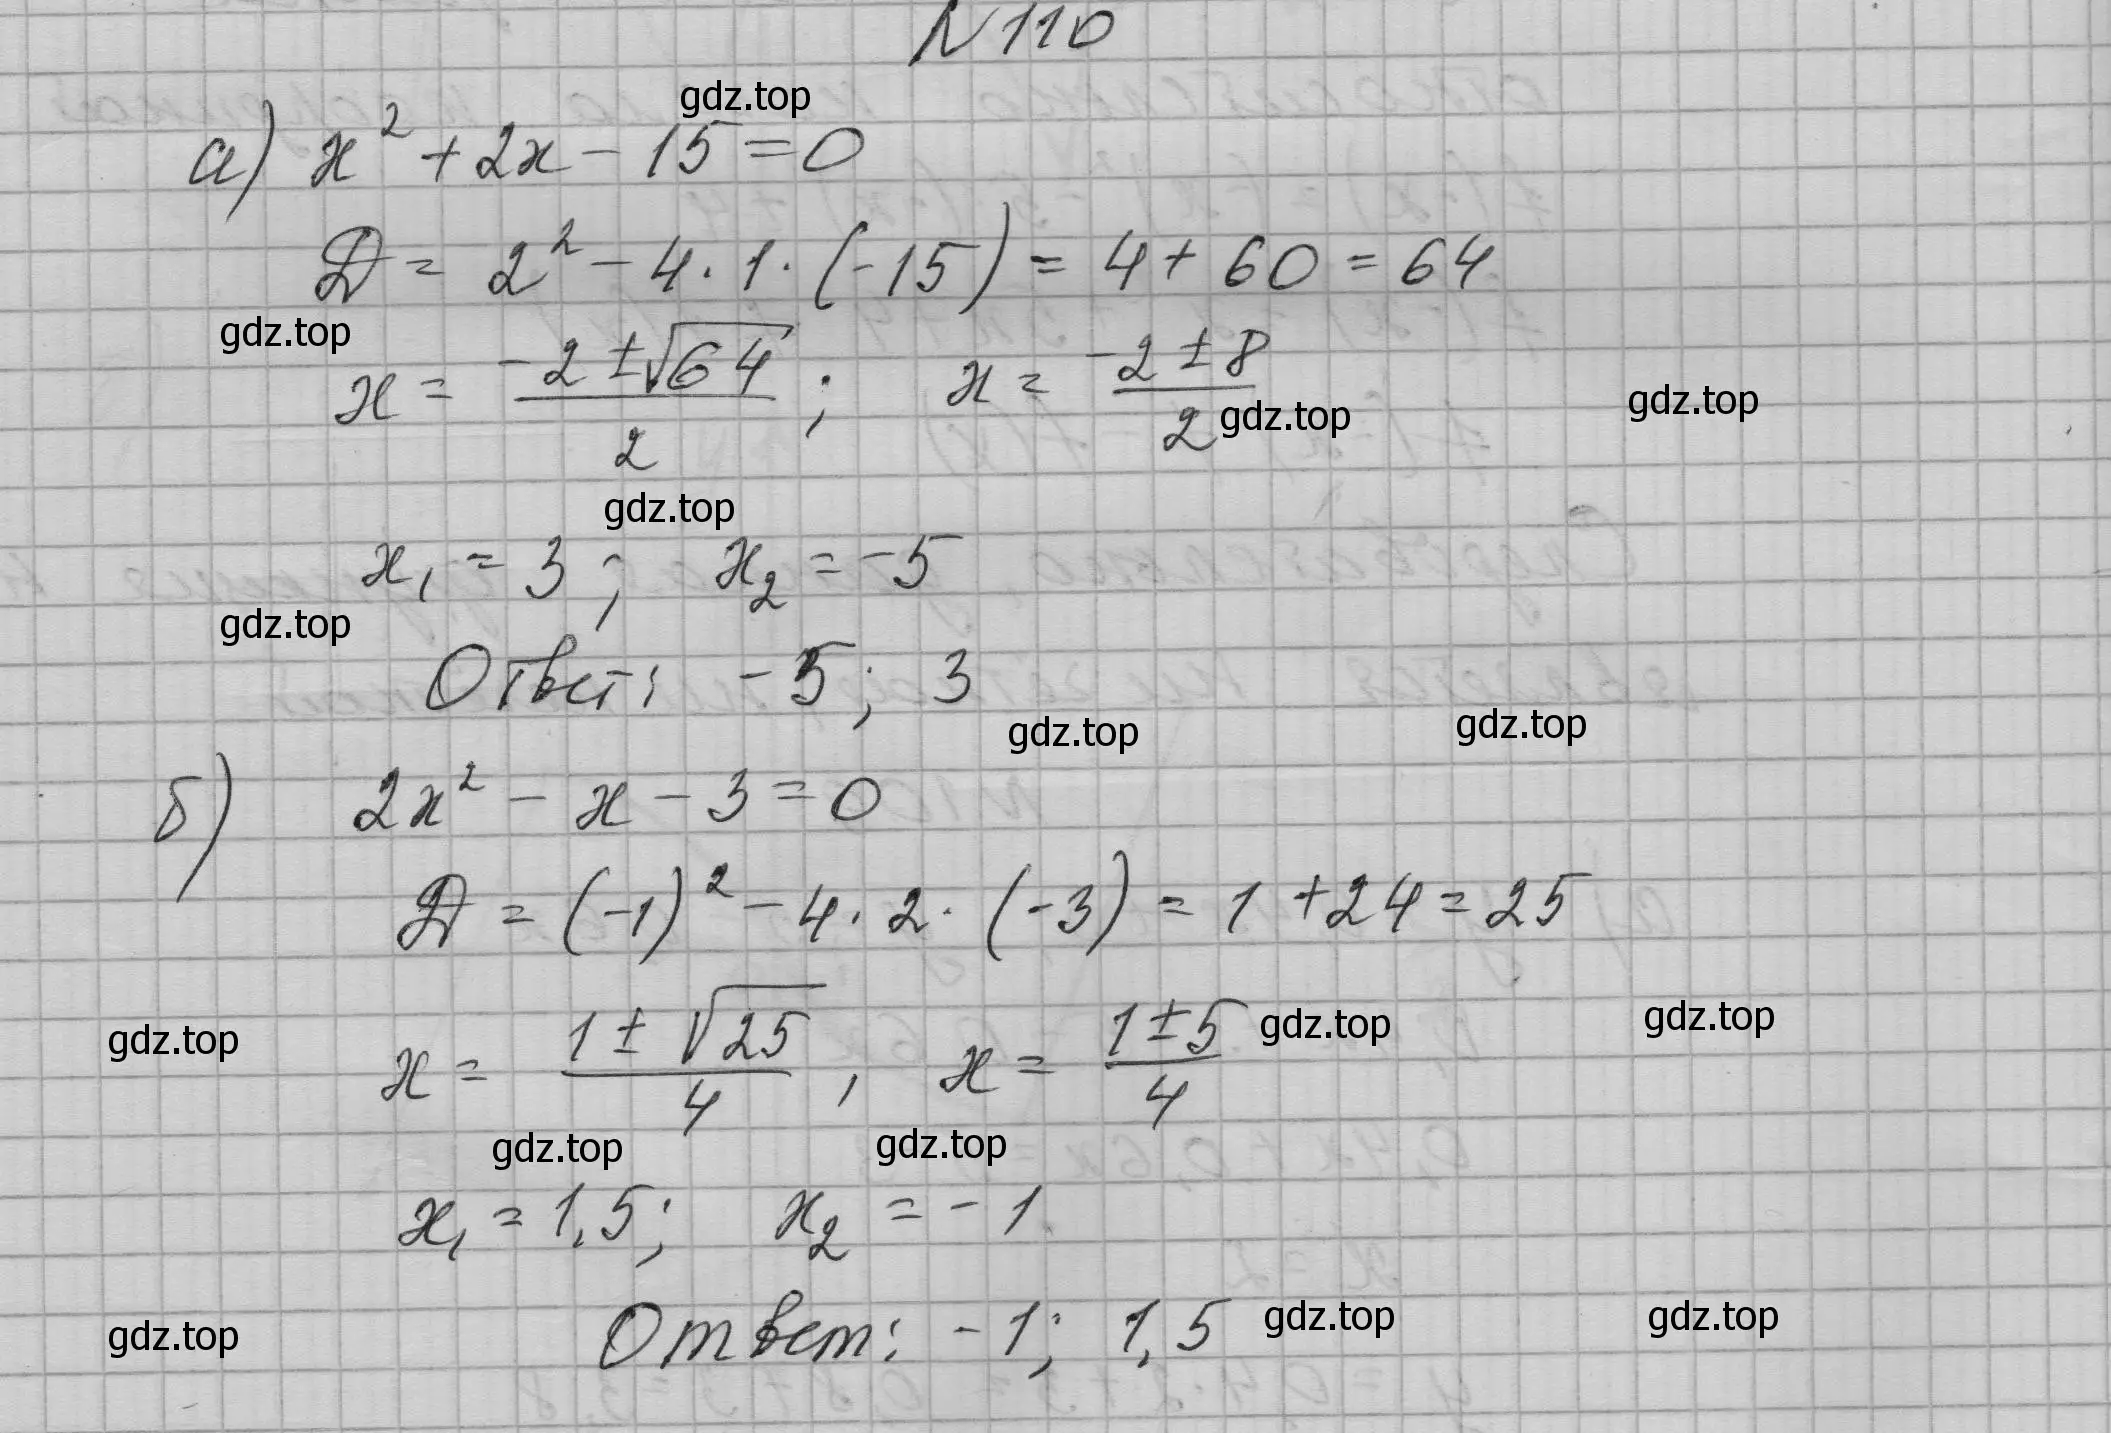 N 110
gdz.top
а) x² + 2x - 15 = 0
Д = 2² - 4 · 1 · (-15) = 4 + 60 = 64
gdz.top
x = (-2 ± √64)/2 ; x = (-2 ± 8)/2
gdz.top gdz.top
gdz.top
x₁ = 3 ; x₂ = -5
gdz.top
Ответ: -5; 3
gdz.top gdz.top
б) 2x² - x - 3 = 0
Д = (-1)² - 4 · 2 · (-3) = 1 + 24 = 25
gdz.top gdz.top gdz.top
x = (1 ± √25)/4 , x = (1 ± 5)/4
gdz.top gdz.top
x₁ = 1,5; x₂ = -1
Ответ: -1; 1,5
gdz.top gdz.top gdz.top